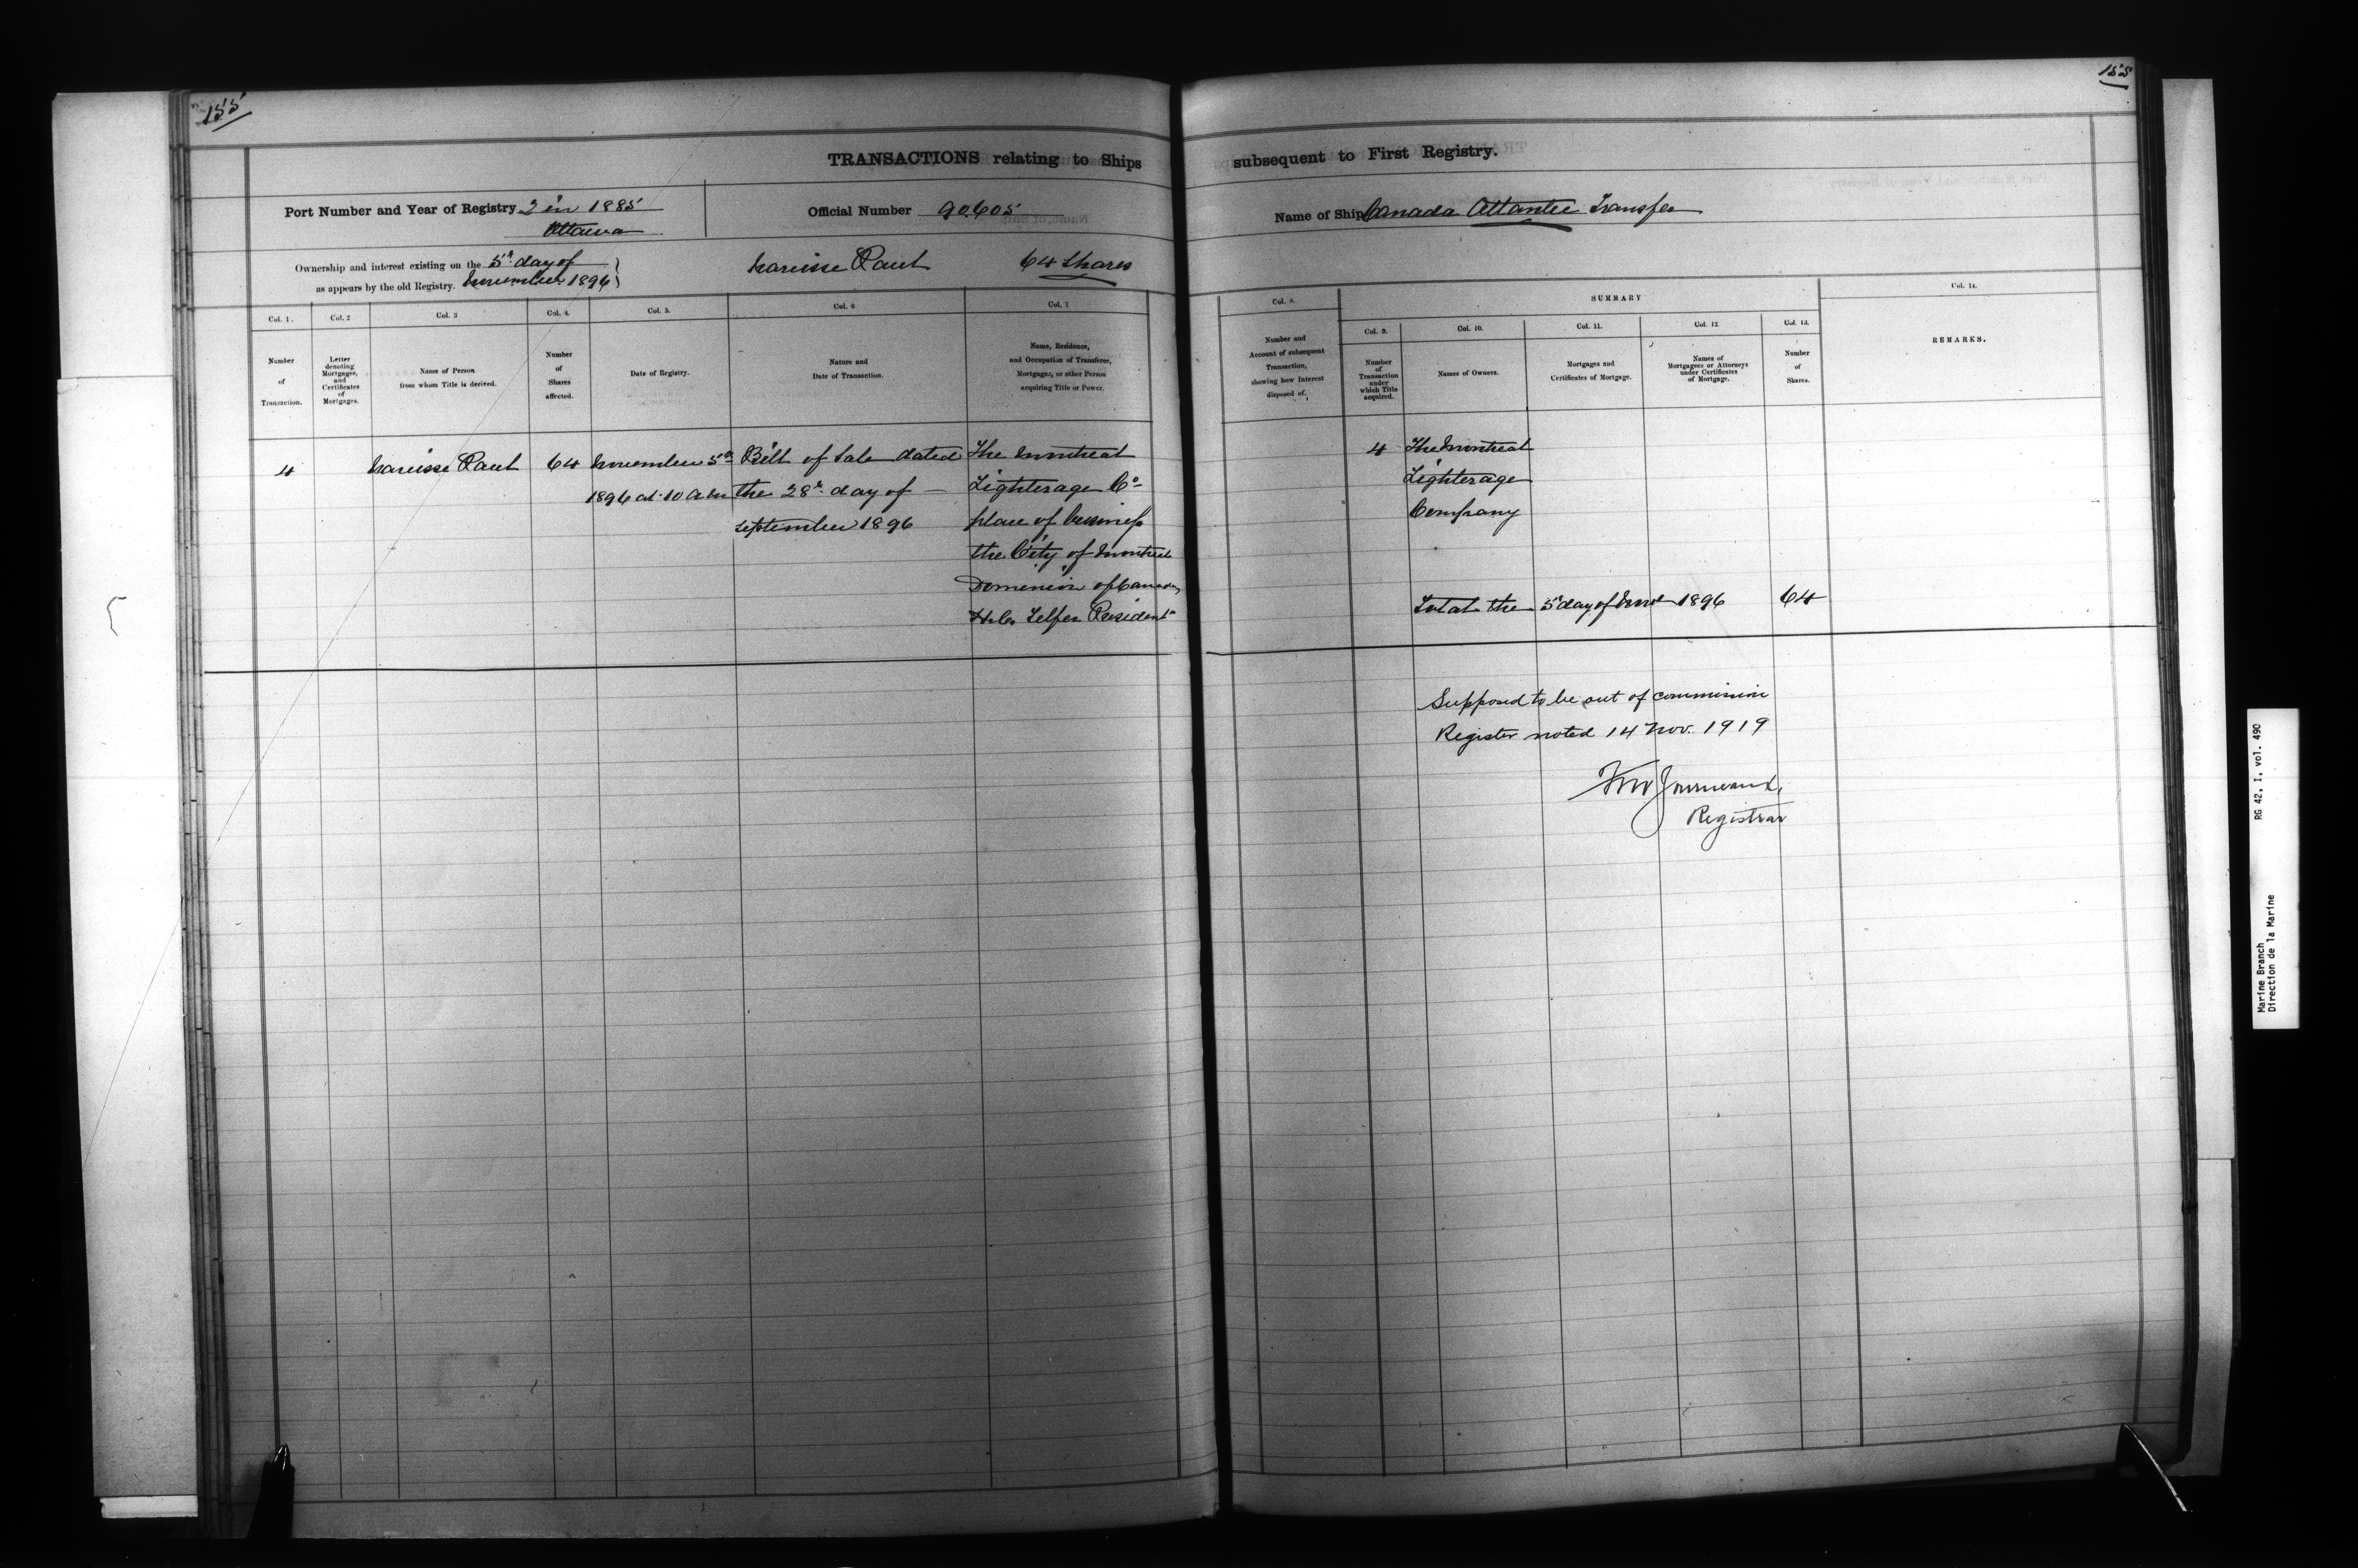 155
155
TRANSACTIONS relating to Ships subsequent to First Registry.
Port Number and Year of Registry 2 in 1885
Ottawa
Official Number 90.605
Name of Ship Canada Atlantic Transfer
Ownership and interest existing on the 5th day of
as appears by the old Registry. November 1896
Narcisse Paul 64 Shares
Col. 1.
Number
of
Transaction.
Col. 2
Letter
denoting
Mortgages,
and
Certificates
of
Mortgages.
Col. 3
Name of Person
from whom Title is derived.
Col. 4.
Number
of
Shares
affected.
Col. 5.
Date of Registry.
Col. 6
Nature and
Date of Transaction.
Col. 7
Name, Residence,
and Occupation of Transferee,
Mortgagee, or other Person
acquiring Title or Power.
Col. 8.
Number and
Account of subsequent
Transaction,
showing how Interest
disposed of.
SUMMARY
Col. 9.
Number
of
Transaction
under
which Title
acquired.
Col. 10.
Names of Owners.
Col. 11.
Mortgages and
Certificates of Mortgage.
Col. 12.
Names of
Mortgagees or Attorneys
under Certificates
of Mortgage.
Col. 13.
Number
of
Shares.
Col. 14.
REMARKS.
4
Narcisse Paul
64
November 5th
1896 at 10 a.m
Bill of Sale dated
the 28th day of
September 1896
The Montreal
Lighterage Co
place of business
the City of Montreal
Dominion of Canada
Telfer President
4
The Montreal
Lighterage
Company
Total the 5 day of Novr 1896 64
Supposed to be out of commission
Register noted 14 Nov. 1919
Registrar
Marine Branch
Direction de la Marine
RG 42, I, vol. 490